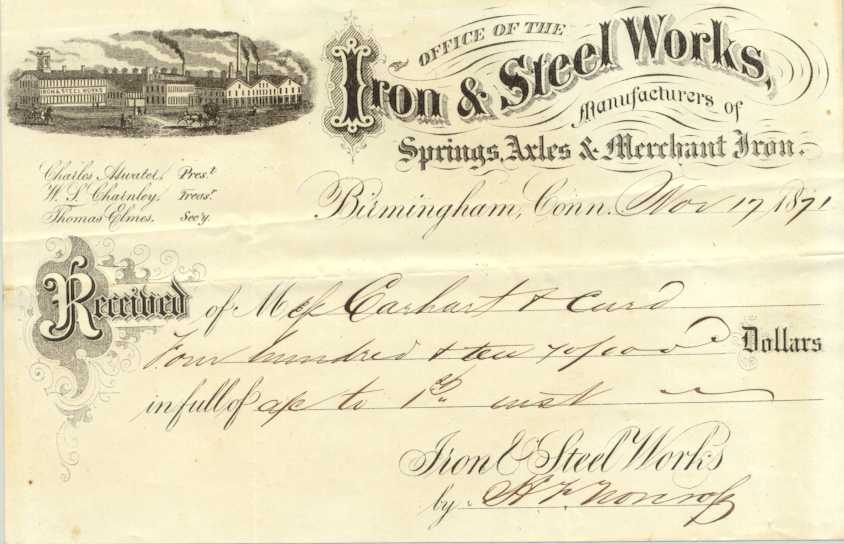 IRON & STEEL WORKS
OFFICE OF THE
Iron & Steel Works,
Manufacturers of
Springs, Axles & Merchant Iron.
Charles Atwater, Pres.t
W. S. Charnley, Treas.r
Thomas Elmes. Sec'y.
Birmingham, Conn. Nov 17 1871
Received of Mess Earhart & Curd
Four hundred & ten 70/100 Dollars
in full of a/c to 1st inst
Iron & Steel Works
by